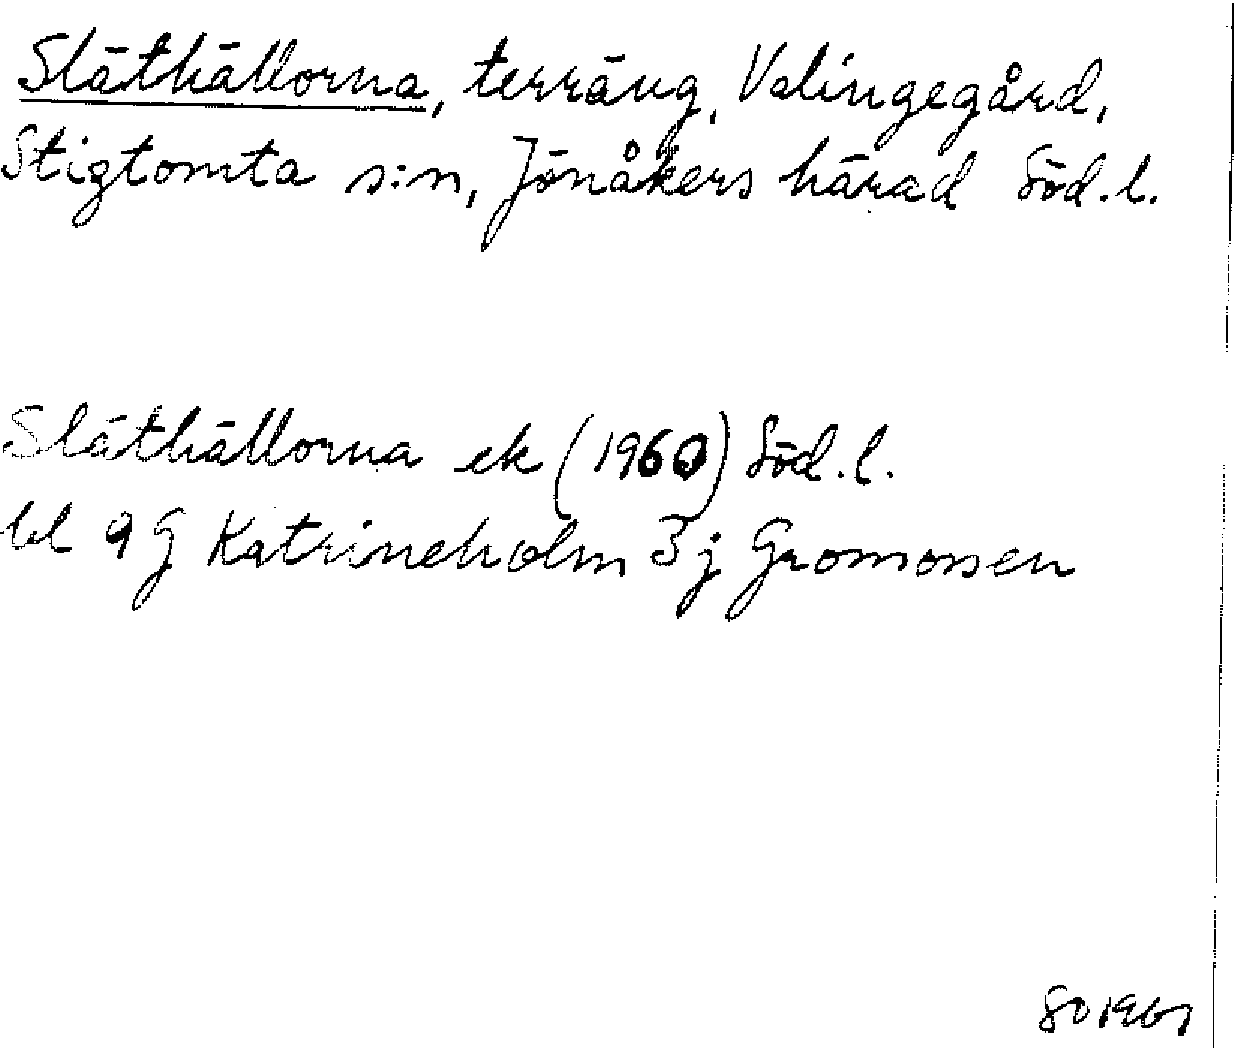 Släthällorna, terräng, Valingegård,
Stigtomta s:n, Jönåkers härad Söd.l.
Släthällorna ek (1960) Söd.l.
bl 9G Katrineholm 3j Gromossen